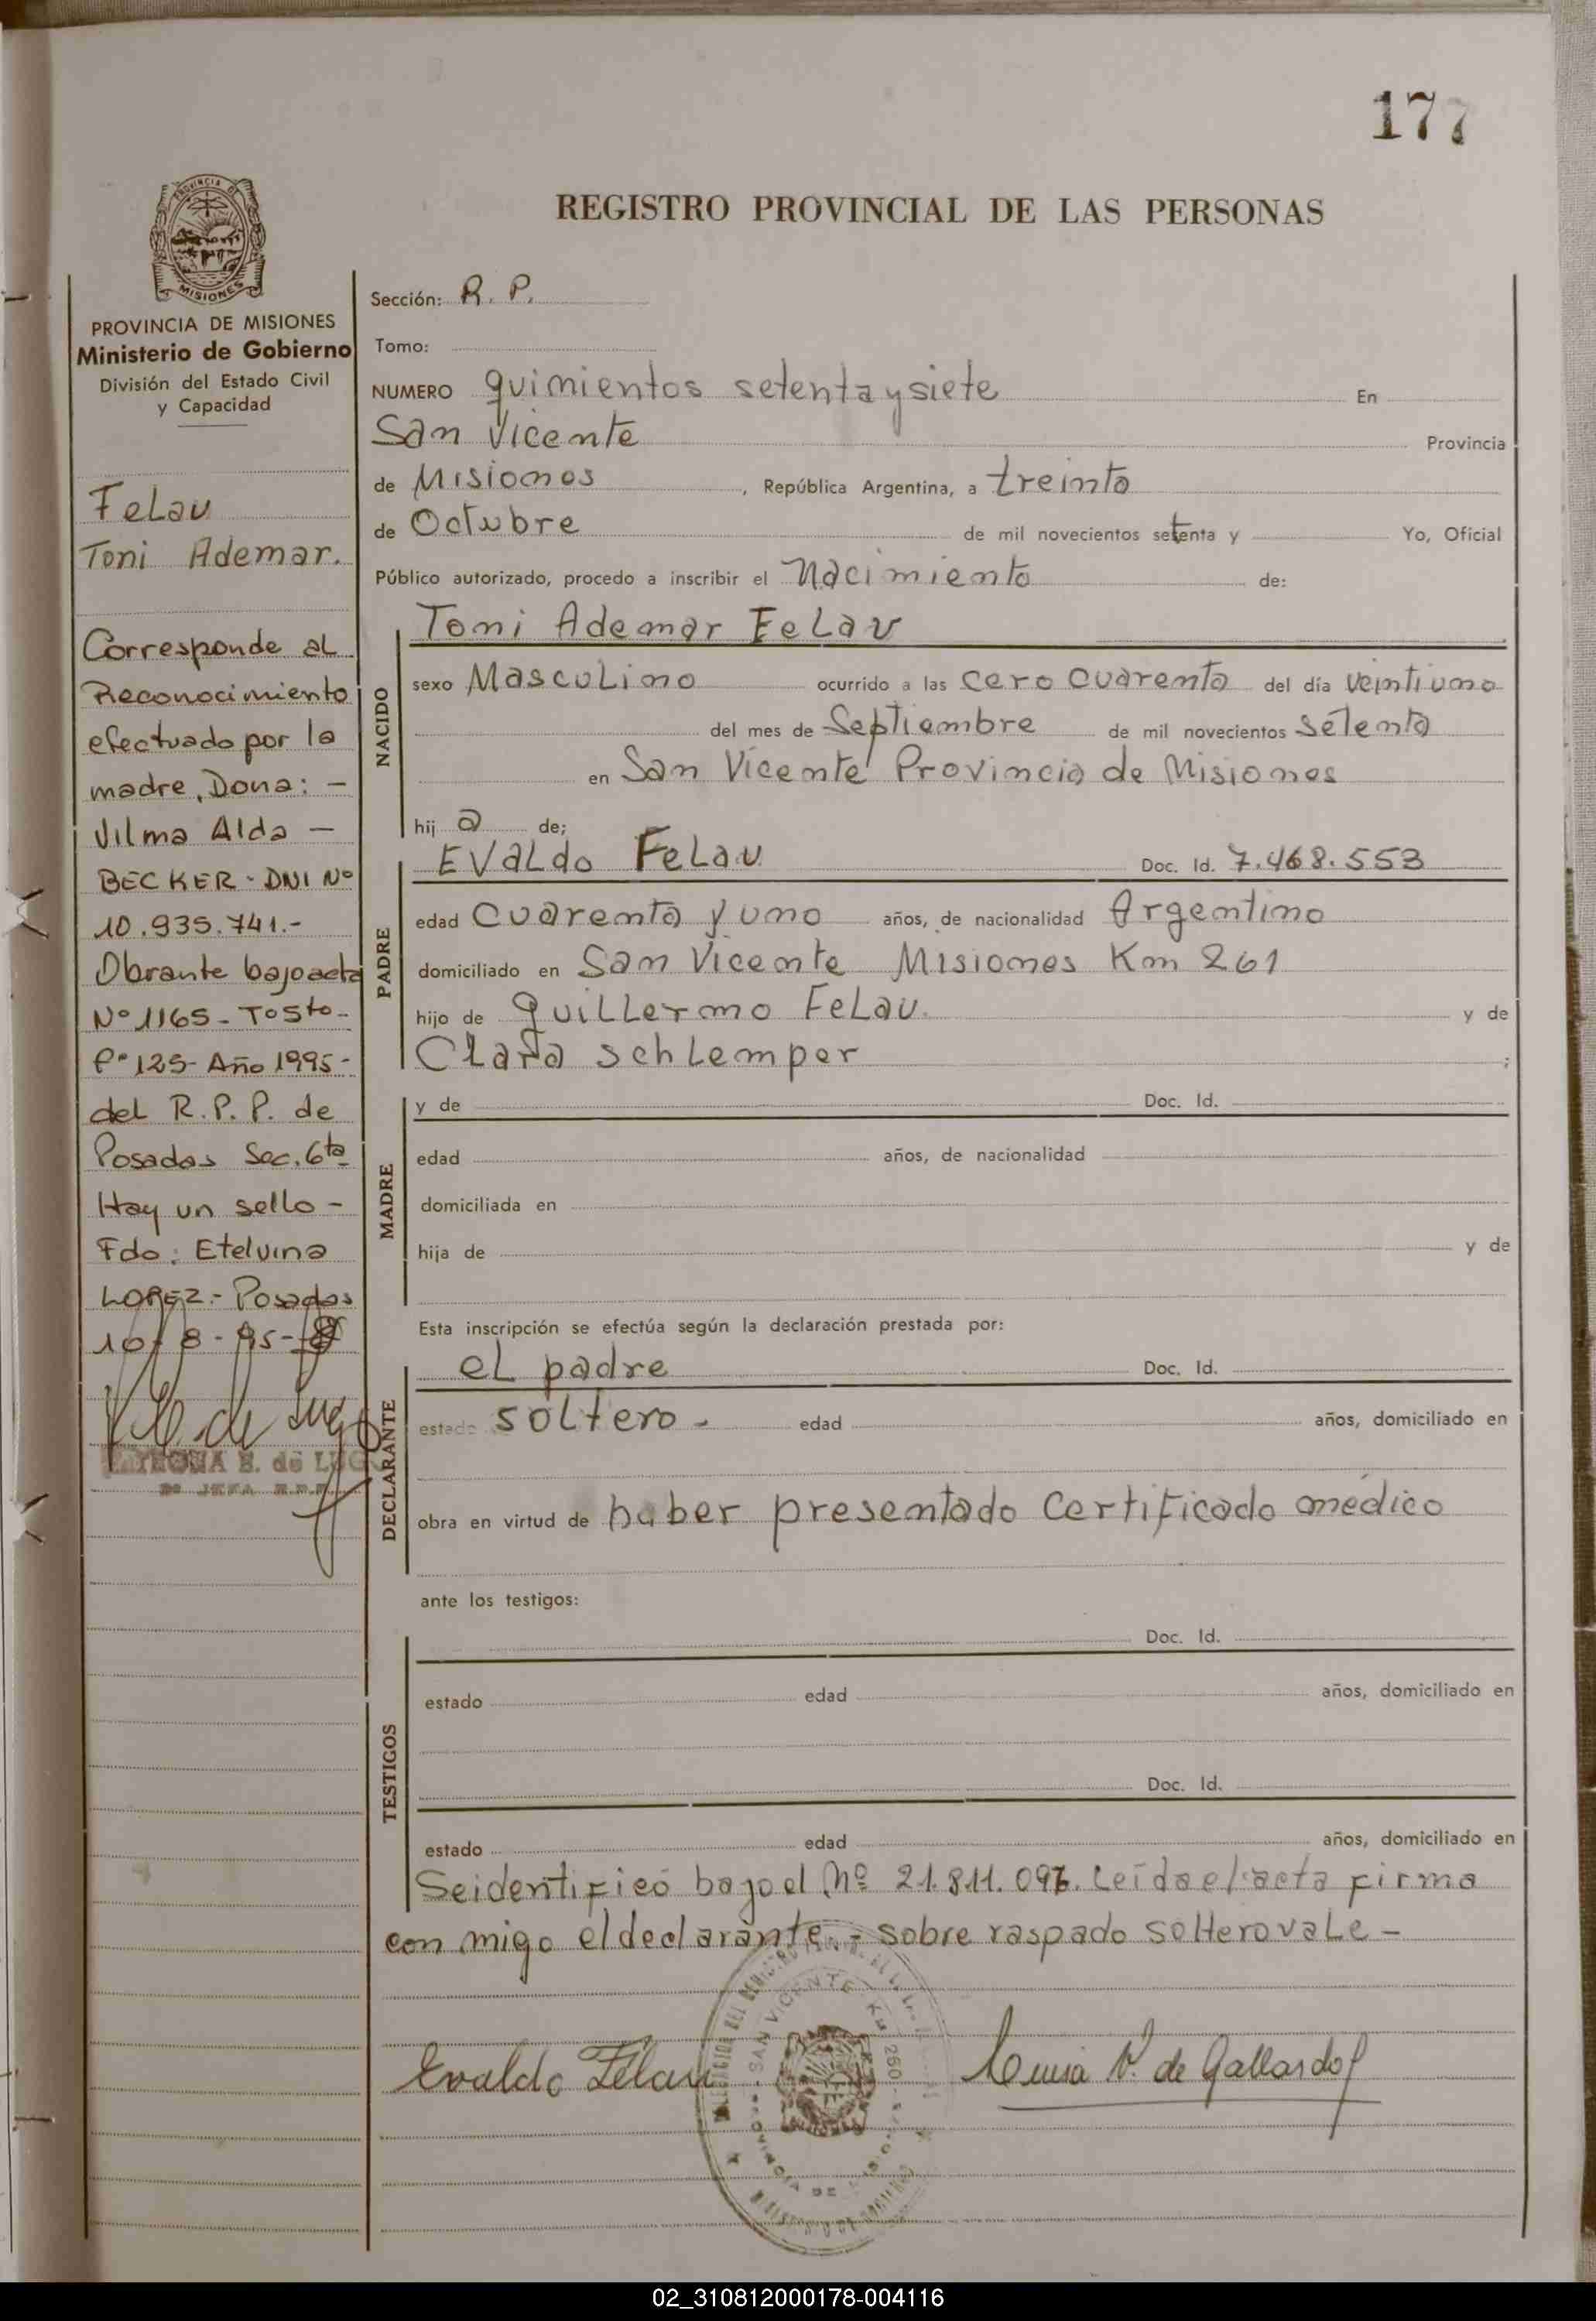 177
REGISTRO PROVINCIAL DE LAS PERSONAS
PROVINCIA DE
MISIONES
PROVINCIA DE MISIONES
Ministerio de Gobierno
División del Estado Civil
y Capacidad
Felau
Toni Ademar.
Corresponde al
Reconocimiento
efectuado por la
madre, Dona: -
Vilma Alda -
BECKER - DNI Nº
10.935.741.-
Obrante bajo acta
Nº 1165 - Tº 5to -
Fº 125 - Año 1995 -
del R.P.P. de
Posadas Sec. 6ta
Hay un sello -
Fdo: Etelvina
LOPEZ.- Posadas
10-8-95-
E. de LUGO
Sección: R. P.
Tomo:
NUMERO quimientos setenta y siete En
San Vicente Provincia
de Misiones, República Argentina, a treinta
de Octubre de mil novecientos setenta y Yo, Oficial
Público autorizado, procedo a inscribir el Nacimiento de:
NACIDO
Toni Ademar Felau
sexo Masculino ocurrido a las cero cuarenta del día veintiuno
del mes de Septiembre de mil novecientos setenta
en San Vicente Provincia de Misiones
hij o de;
PADRE
Evaldo Felau Doc. Id. 7.468.553
edad cuarenta y uno años, de nacionalidad Argentino
domiciliado en San Vicente Misiones Km 261
hijo de Guillermo Felau. y de
Clara Schlemper ;
MADRE
y de Doc. Id.
edad años, de nacionalidad
domiciliada en
hija de y de
Esta inscripción se efectúa según la declaración prestada por:
DECLARANTE
el padre Doc. Id.
estado soltero - edad años, domiciliado en
obra en virtud de haber presentado certificado médico
ante los testigos:
TESTIGOS
Doc. Id.
estado edad años, domiciliado en
Doc. Id.
estado edad años, domiciliado en
Se identificó bajo el Nº 21.811.096. Leída el acta firma
con migo el declarante. - sobre raspado soltero vale -
Evaldo Felau
V. de Gallardo
SAN VICENTE
02_310812000178-004116